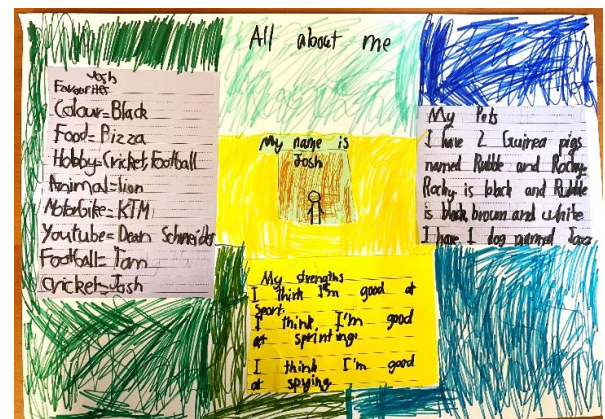 All about me
Josh
Favourites
Colour=Black
Food=Pizza
Hobby=Cricket, Football
Animal=lion
Motorbike=KTM
Youtube=Dean Schneider
Football=Tom
Cricket=Josh
My name is
Josh
My Pets
I have 2 Guinea pigs
named Rubble and Rocky.
Rocky is black and Rubble
is black, brown and white
I have 1 dog named Jazz
My strengths
I think I'm good at
sport.
I think I'm good
at sprinting.
I think I'm good
at spying.